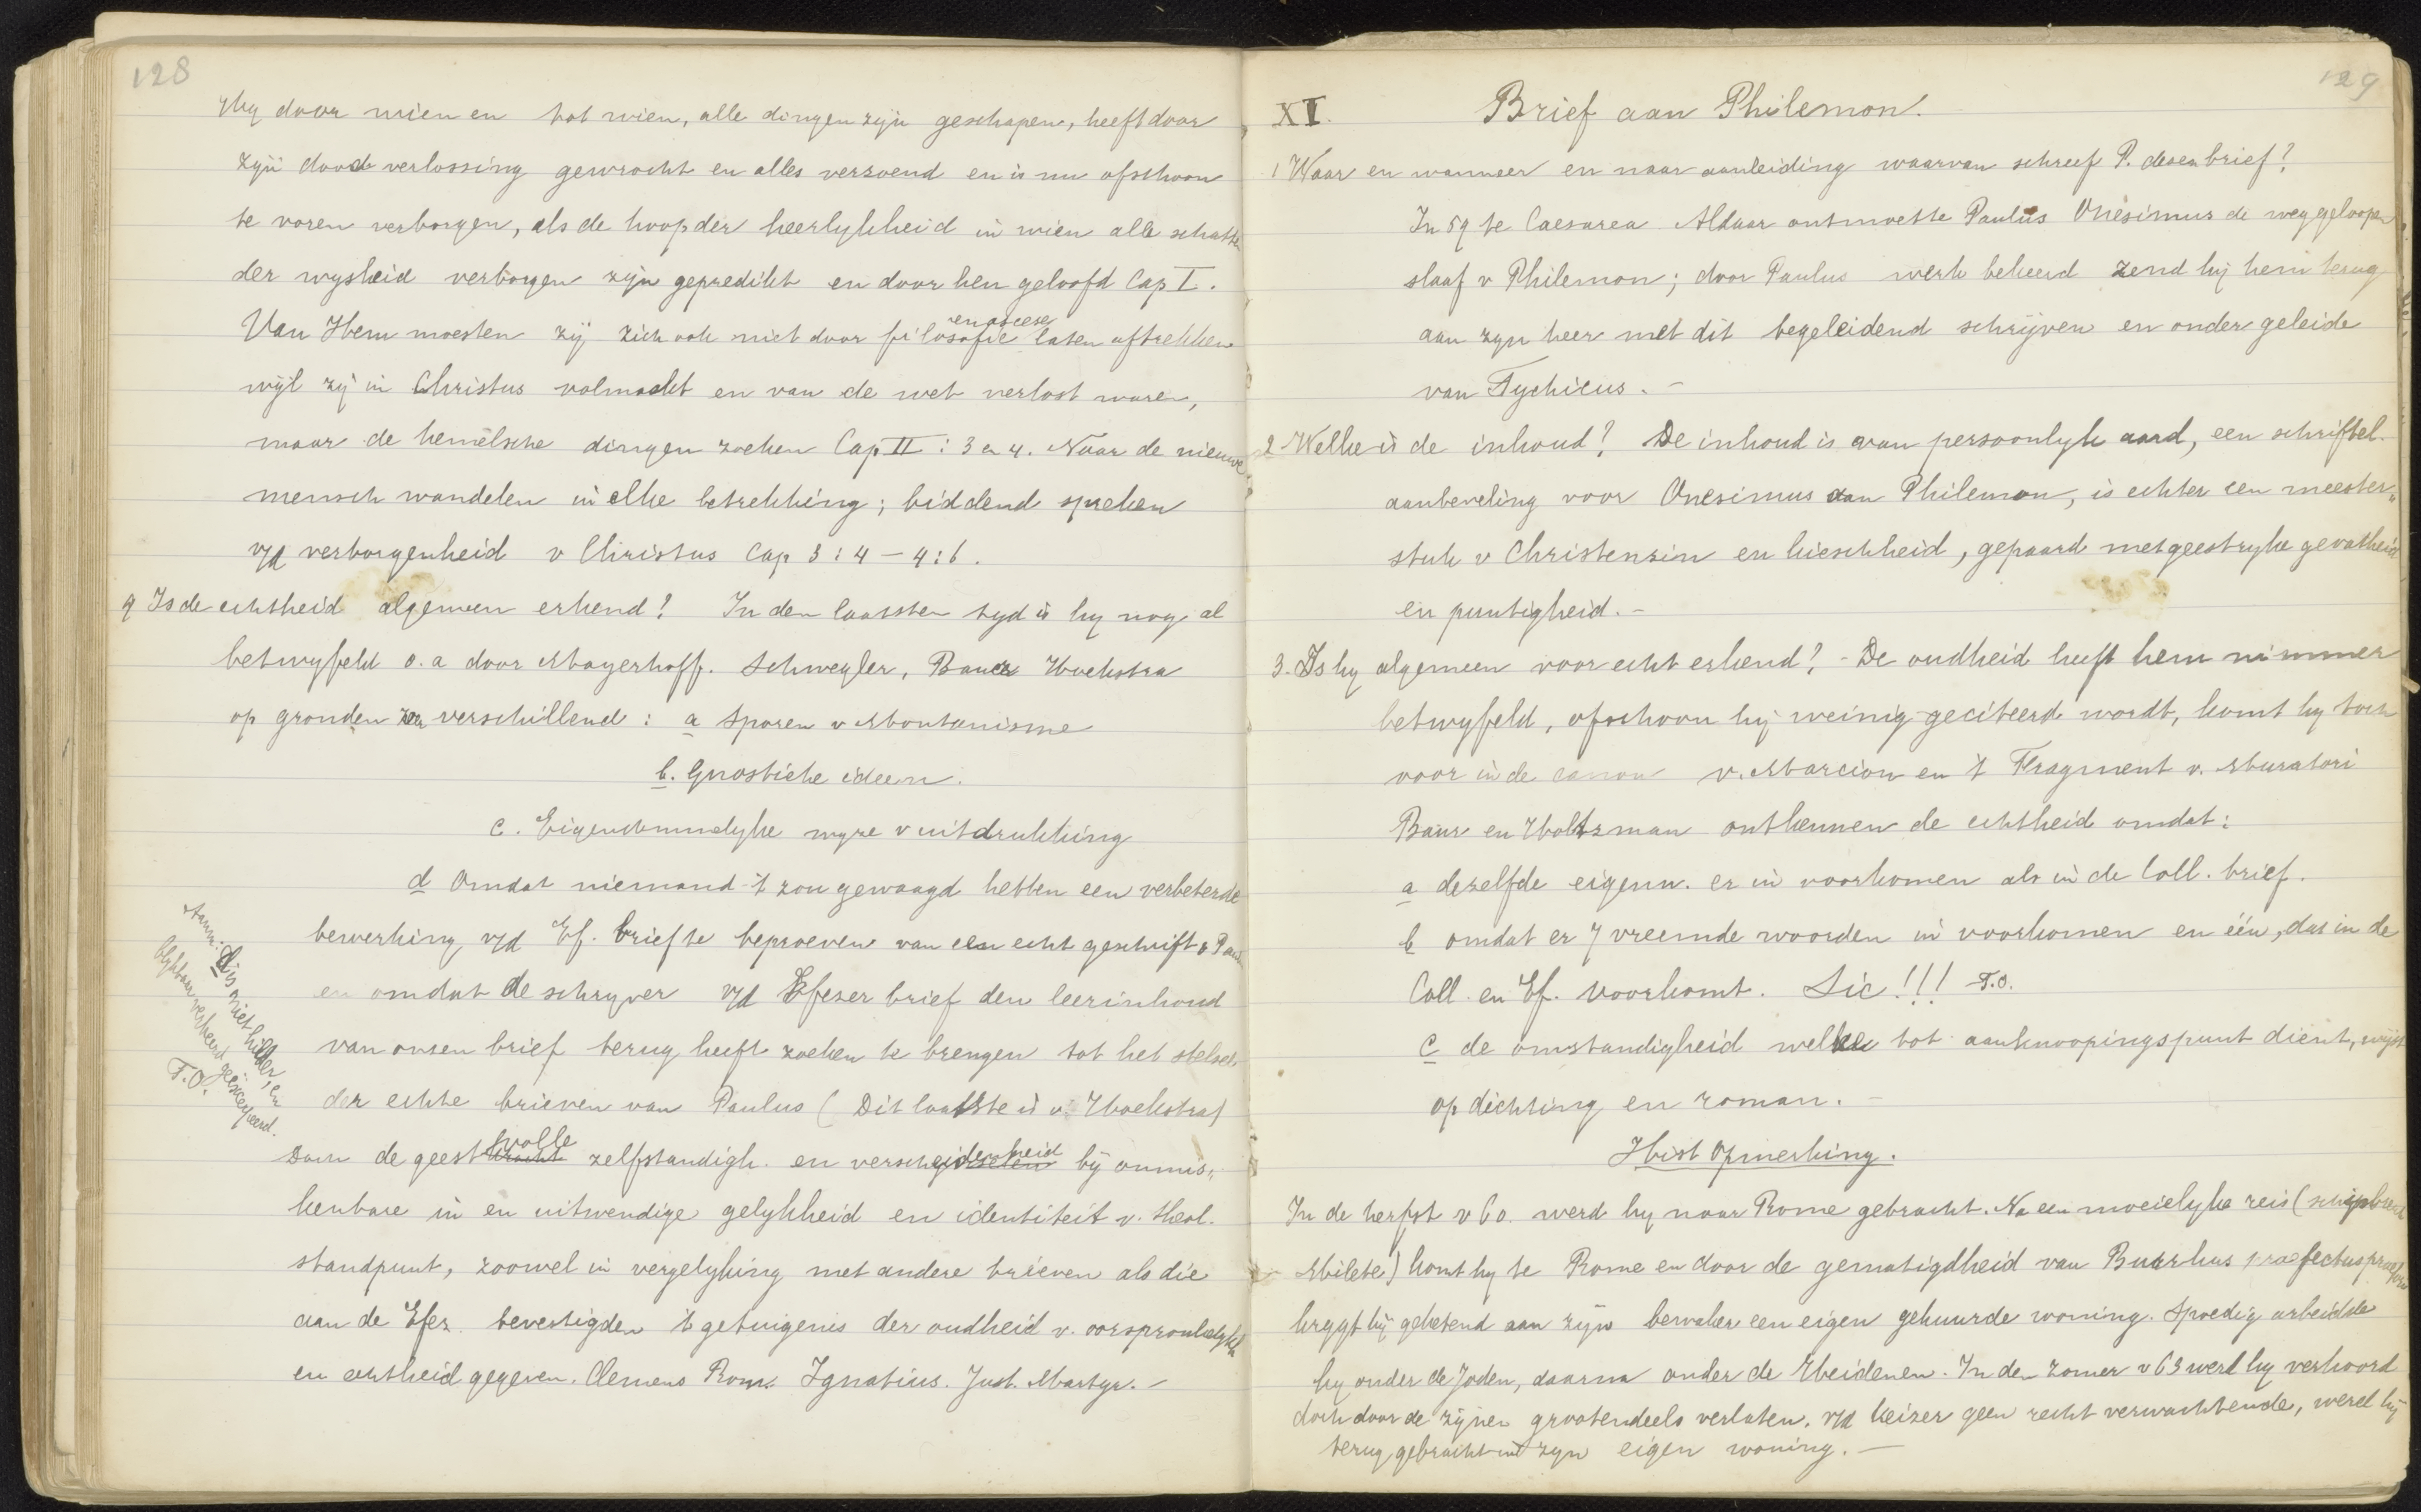 128
Hy door wien en tot wien, alle dingen zyn geschapen, heeft door
zyn dood verlossing gewrocht en alles verzoend en is nu ofschoon
te voren verborgen, als de hoop der heerlykheid in wien alle schatten
der wysheid verborgen zyn gepredikt en door hen geloofd Cap I.
Van Hem moesten zij zich ook niet door filosofie en ascese laten aftrekken
wijl zij in Christus volmaakt en van de wet verlost waren,
maar de hemelsche dingen zoeken Cap II : 3 en 4. Naar de nieuwe
mensch wandelen in elke betrekking; biddend spreken
v/d verborgenheid v Christus Cap 3 : 4 — 4 : 6.
9 Is de echtheid algemeen erkend? In den laatsten tyd is hy nog al
betwyfeld o.a door Mayerhoff. Schwegler, Bauer Hoekstra
op gronden zeer verschillend : a sporen v Montanisme
b. Gnostiche ideen.
c. Eigendommelyke wyze v uitdrukking
d Omdat niemand 't zou gewaagd hebben een verbeterde
bewerking v/d Ef. brief te beproeven van een echt geschrift v Paul
en omdat de schryver v/d Efezer brief den leerinhoud
van onzen brief terug heeft zoeken te brengen tot het stelsel
der echte brieven van Paulus ( Dit laatste is v. Hoekstra)
Doch de geestvolle zelfstandigh. en verscheidenheid bij onmis„
kenbare in en uitwendige gelykheid en identiteit v. theol.
standpunt, zoowel in vergelyking met andere brieven als die
aan de Efez. bevestigden 't getuigenis der oudheid v. oorspronkelykh
en echtheid gegeven. Clemens Rom. Ignatius. Just. Martyr. –
d is niet helder, en
blykbaar verkeerd geëxcerpeerd.
T.O.
129
XI. Brief aan Philemon.
1 Waar en wanneer en naar aanleiding waarvan schreef P. dezen brief?
In 59 te Caesarea Aldaar ontmoette Paulus Onesimus de weggeloopen
slaaf v Philemon; door Paulus werk bekeerd zend hij hem terug
aan zyn heer met dit begeleidend schrijven en onder geleide
van Tychicus. –
2 Welke is de inhoud? De inhoud is van persoonlyk aard, een schriftel.
aanbeveling voor Onesimus aan Philemon, is echter een meester„
stuk v Christenzin en kieschheid, gepaard met geestryke gevatheid
en puntigheid. –
3. Is hy algemeen voor echt erkend? – De oudheid heeft hem nimmer
betwyfeld, ofschoon hij weinig geciteerd wordt, komt hy toch
voor in de canon v. Marcion en 't Fragment v. Muratori
Baur en Holtzman ontkennen de echtheid omdat:
a dezelfde eigenn. er in voorkomen als in de Coll. brief.
b omdat er 7 vreemde woorden in voorkomen en één, dat in de
Coll. en Ef. voorkomt. Sic!!! T.O.
c de omstandigheid welke tot aanknoopingspunt dient, wijst
op dichting en roman. –
Hist Opmerking.
In de herfst v 60. werd hy naar Rome gebracht. Na een moeielyke reis (schipbreuk
Milete) komt hy te Rome en door de gematigdheid van Burrhus praefectus praetorio
krygt hij geketend aan zyn bewaker een eigen gehuurde woning. Spoedig arbeidde
hy onder de Joden, daarna onder de Heidenen. In den zomer v 63 werd hy verhoord
doch door de zijnen grootendeels verlaten. v/d keizer geen recht verwachtende, werd hij
terug gebracht in zyn eigen woning. —